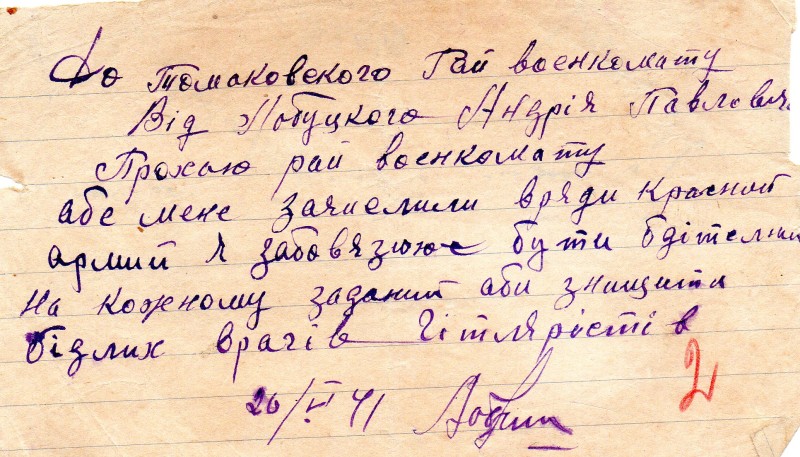 До томаковского Рай воєнкомату
Від Лобуцкого Андрія Павлович
Прохаю рай воєнкомату
абе мене зачислили вряди Красной
армий Я забовязююс бути бдітелним
На кожному заданий аби знищити
бідлих врагів Гітлярістів
26/VI 41
2